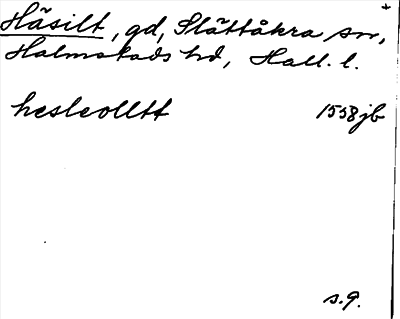 Häsilt, gd, Slättåkra sn,
Halmstads hd, Hall. l.
hesleolltt 1558 jb
s. 9.